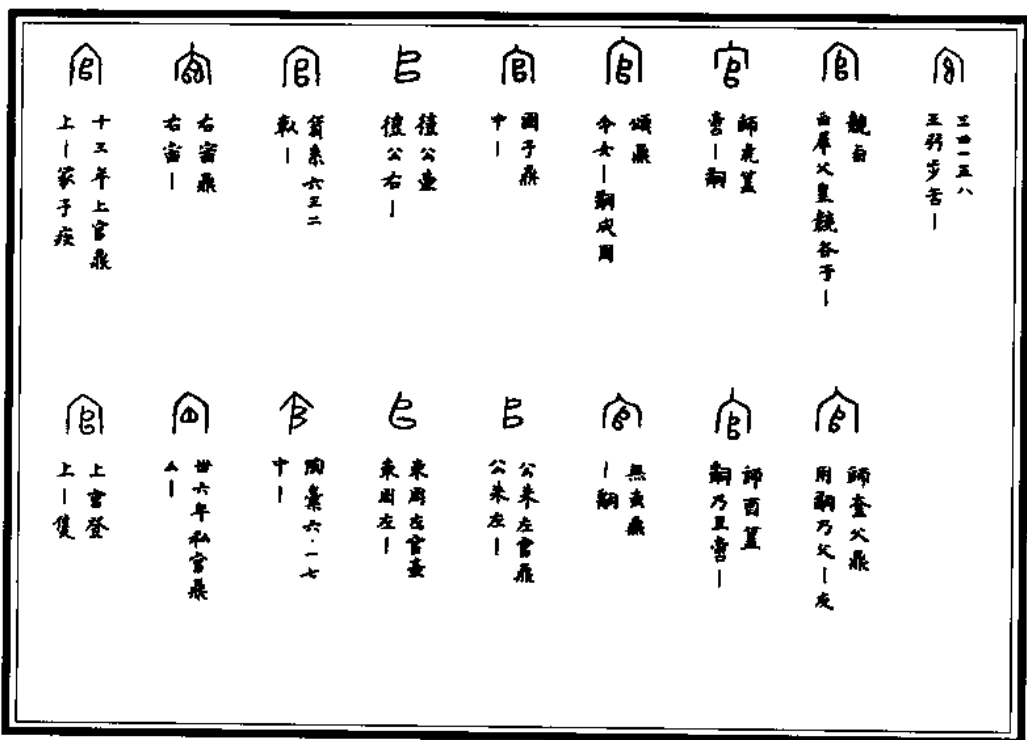 三四一五八
競卣
白犀父皇競各于｜
師虎簋
啻｜嗣
頌鼎
令女｜嗣成周
國子鼎
中｜
公壺
公右｜
貨系六三二
右官鼎
右官｜
十三年上官鼎
上｜冢子疾
師奎父鼎
用嗣乃父｜友
師酉簋
嗣乃且啻｜
無叀鼎
｜嗣
公朱左官鼎
公朱左｜
東周左官壺
東周左｜
陶彙六·一七
中｜
卅六年私官鼎
厶｜
上官登
上｜隻